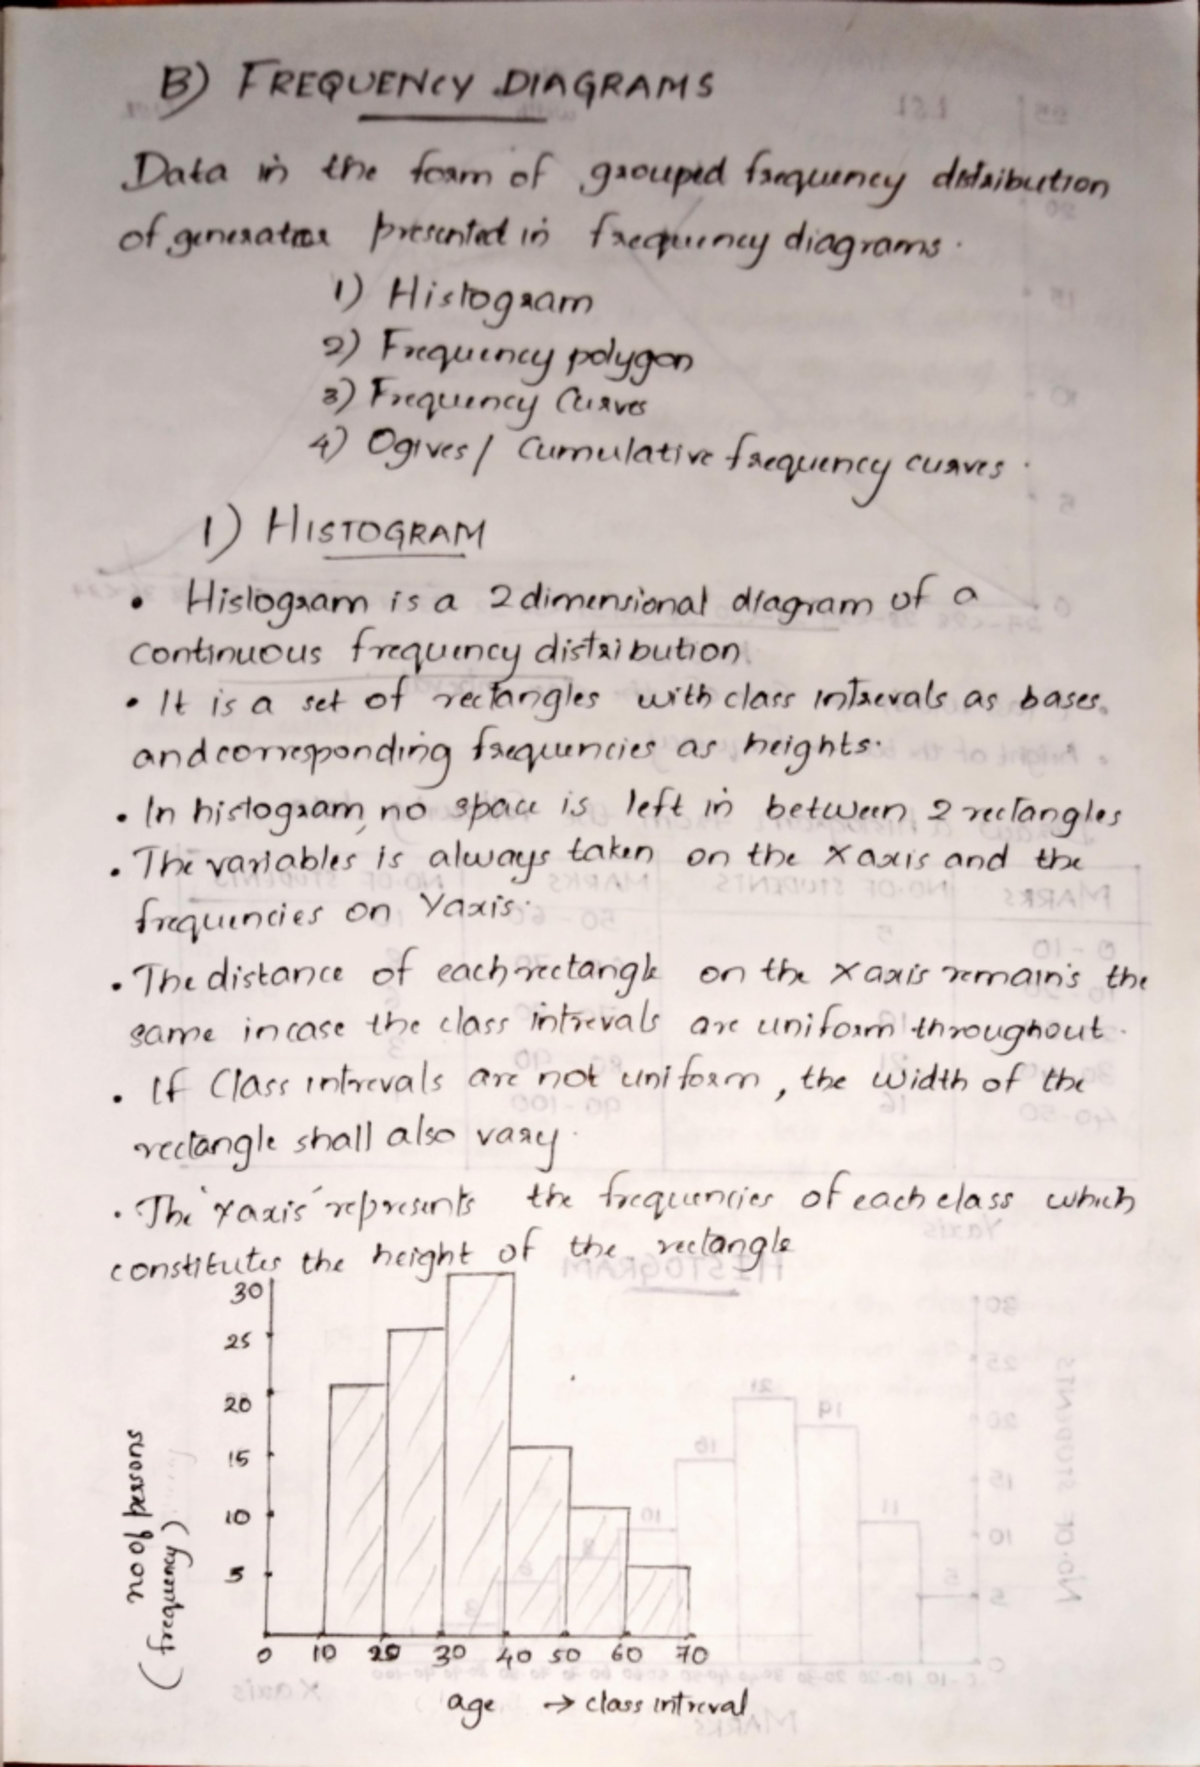 B) FREQUENCY DIAGRAMS
Data in the form of grouped frequency distribution
of presented in frequency diagrams.
1) Histogram
2) Frequency polygon
3) Frequency Curves
4) Ogives / Cumulative frequency curves.
1) HISTOGRAM
• Histogram is a 2 dimensional diagram of a
continuous frequency distribution.
• It is a set of rectangles with class intrevals as bases,
and corresponding frequencies as heights.
• In histogram, no space is left in between 2 rectangles
• The variables is always taken on the X axis and the
frequencies on Y axis.
• The distance of each rectangle on the X axis remains the
same in case the class intrevals are uniform throughout.
• If Class intrevals are not uniform, the width of the
rectangle shall also vary.
• The 'Y axis' represents the frequencies of each class which
constitutes the height of the rectangle
30
25
20
15
10
5
no of persons
(frequency)
0 10 20 30 40 50 60 70
age → class intreval